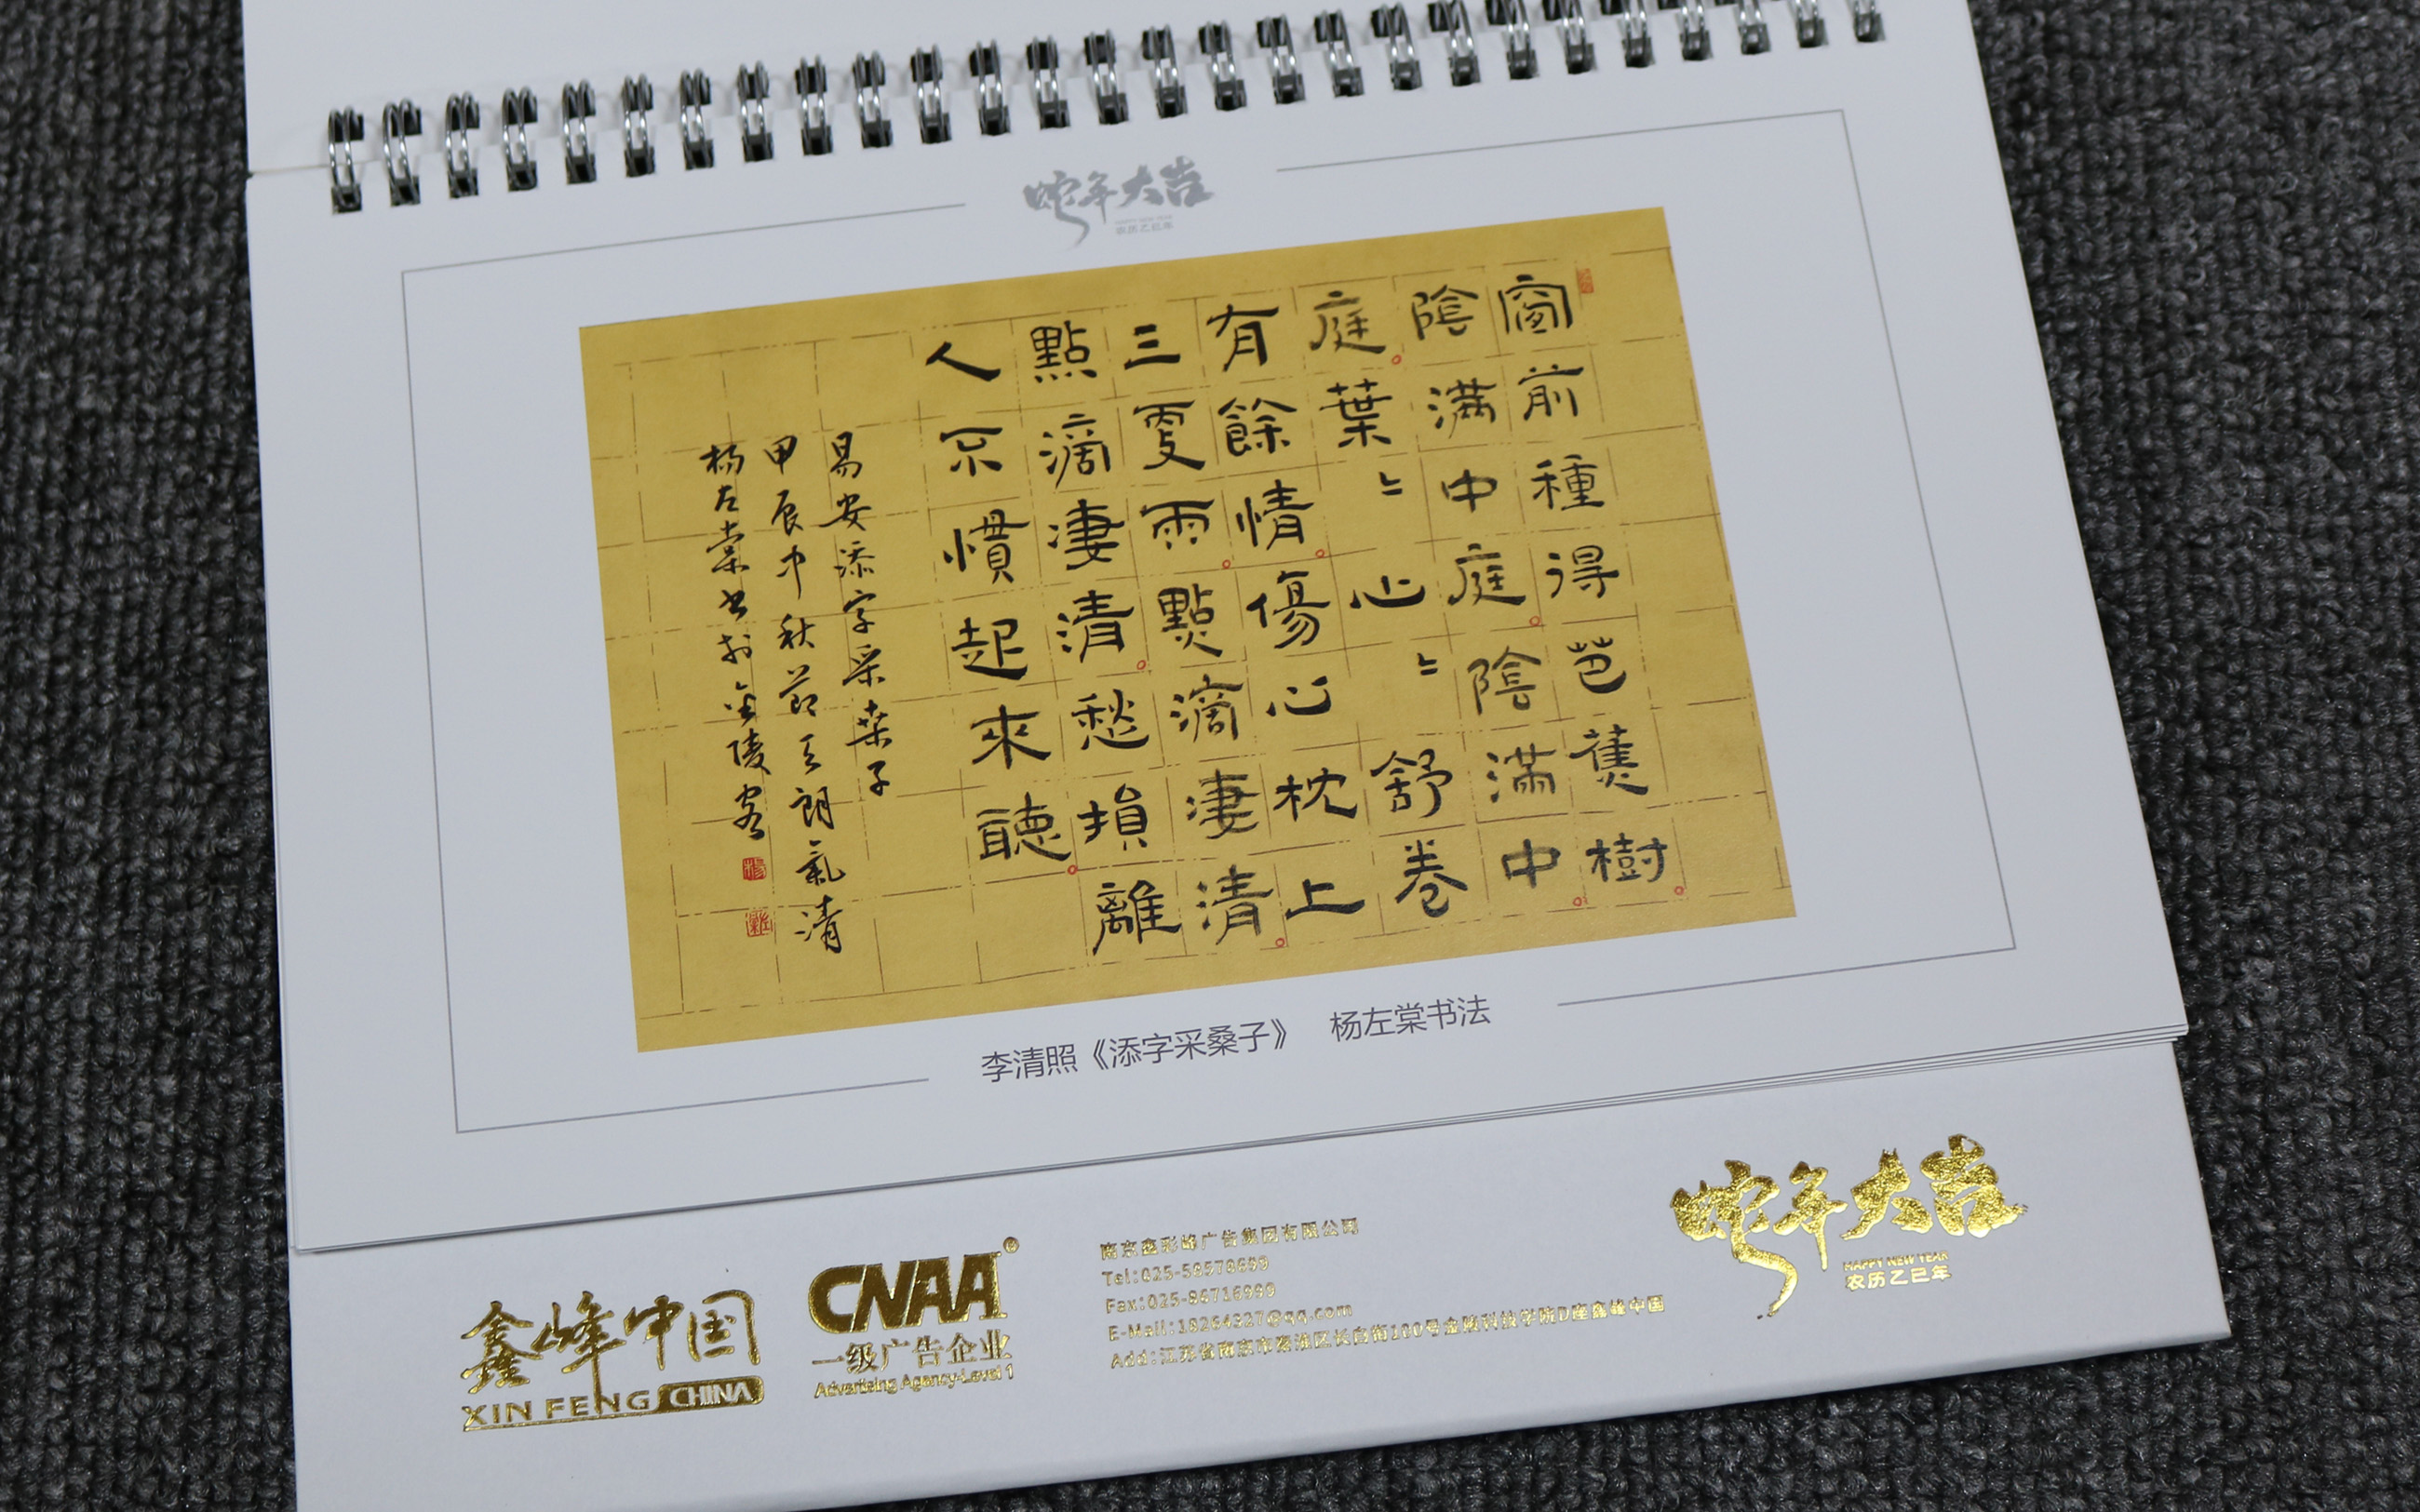 蛇年大吉
HAPPY NEW YEAR
农历乙巳年
窗前種得芭蕉樹
陰滿中庭陰滿中
庭葉〻心〻舒卷
有餘情傷心枕上
三更雨點滴淒清
點滴淒清愁損離
人不慣起來聽
易安添字采桑子
甲辰中秋節天朗氣清
杨左棠书於金陵客
李清照《添字采桑子》 杨左棠书法
鑫峰中国
XIN FENG CHINA
CNAA®
一级广告企业
Advertising Agency-Level 1
南京鑫彩峰广告集团有限公司
Tel:
Fax:
E-Mail:
Add:江苏省南京市秦淮区长白街100号金陵科技学院D座鑫峰中国
蛇年大吉
HAPPY NEW YEAR
农历乙巳年